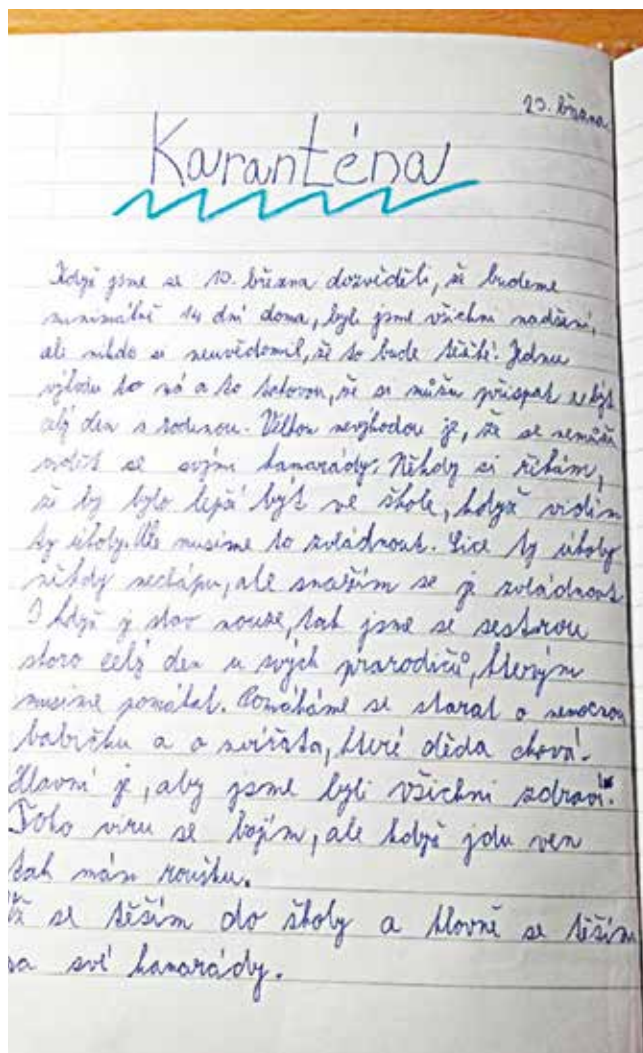 23. března
Karanténa
Když jsme se 10. března dozvěděli, že budeme
minimálně 14 dní doma, byli jsme všichni nadšení,
ale nikdo si neuvědomil, že to bude těžké. Jednu
výhodu to má a to takovou, že si můžu přispat a být
celý den s rodinou. Velkou nevýhodou je, že se nemůžu
vidět se svými kamarády. Někdy si říkám,
že by bylo lepší být ve škole, když vidím
ty úkoly. Ale musíme to zvládnout. Sice ty úkoly
někdy nechápu, ale snažím se je zvládnout
I když je stav nouze, tak jsme se sestrou
skoro celý den u svých prarodičů, kterým
musíme pomáhat. Pomáháme se starat o nemocnou
babičku a o zvířata, které děda chová.
Hlavní je, aby jsme byli všichni zdraví.
Toho viru se bojím, ale když jdu ven
tak mám roušku.
Už se těším do školy a hlavně se těším
na své kamarády.